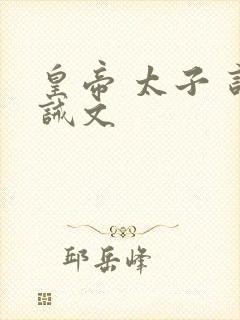 皇帝 太子
誡文
邱岳峰